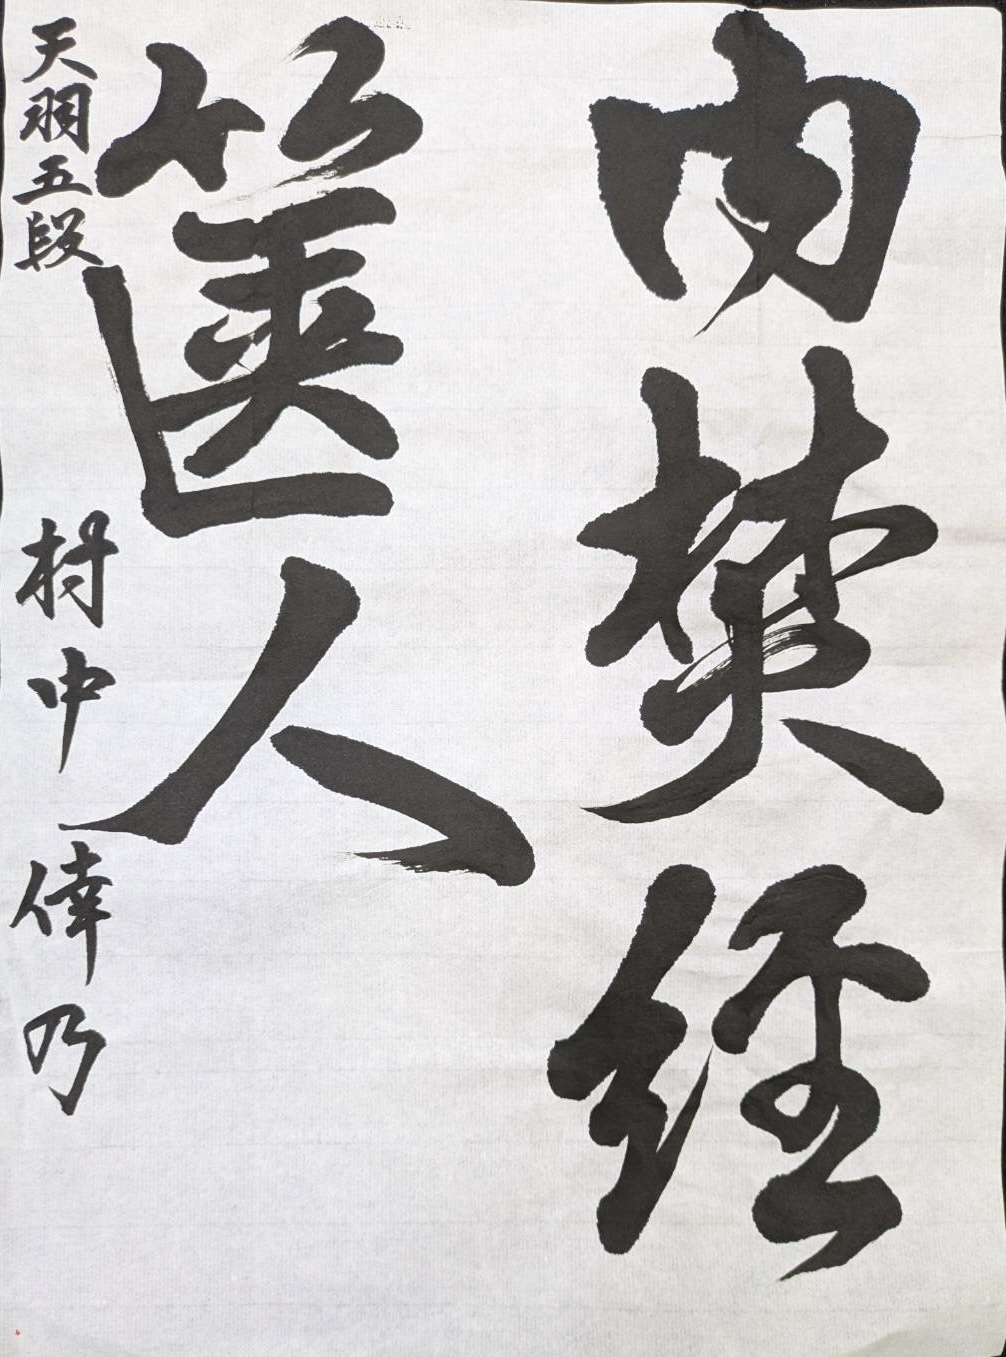 内焚経
篋人
天羽五段 村中倖乃